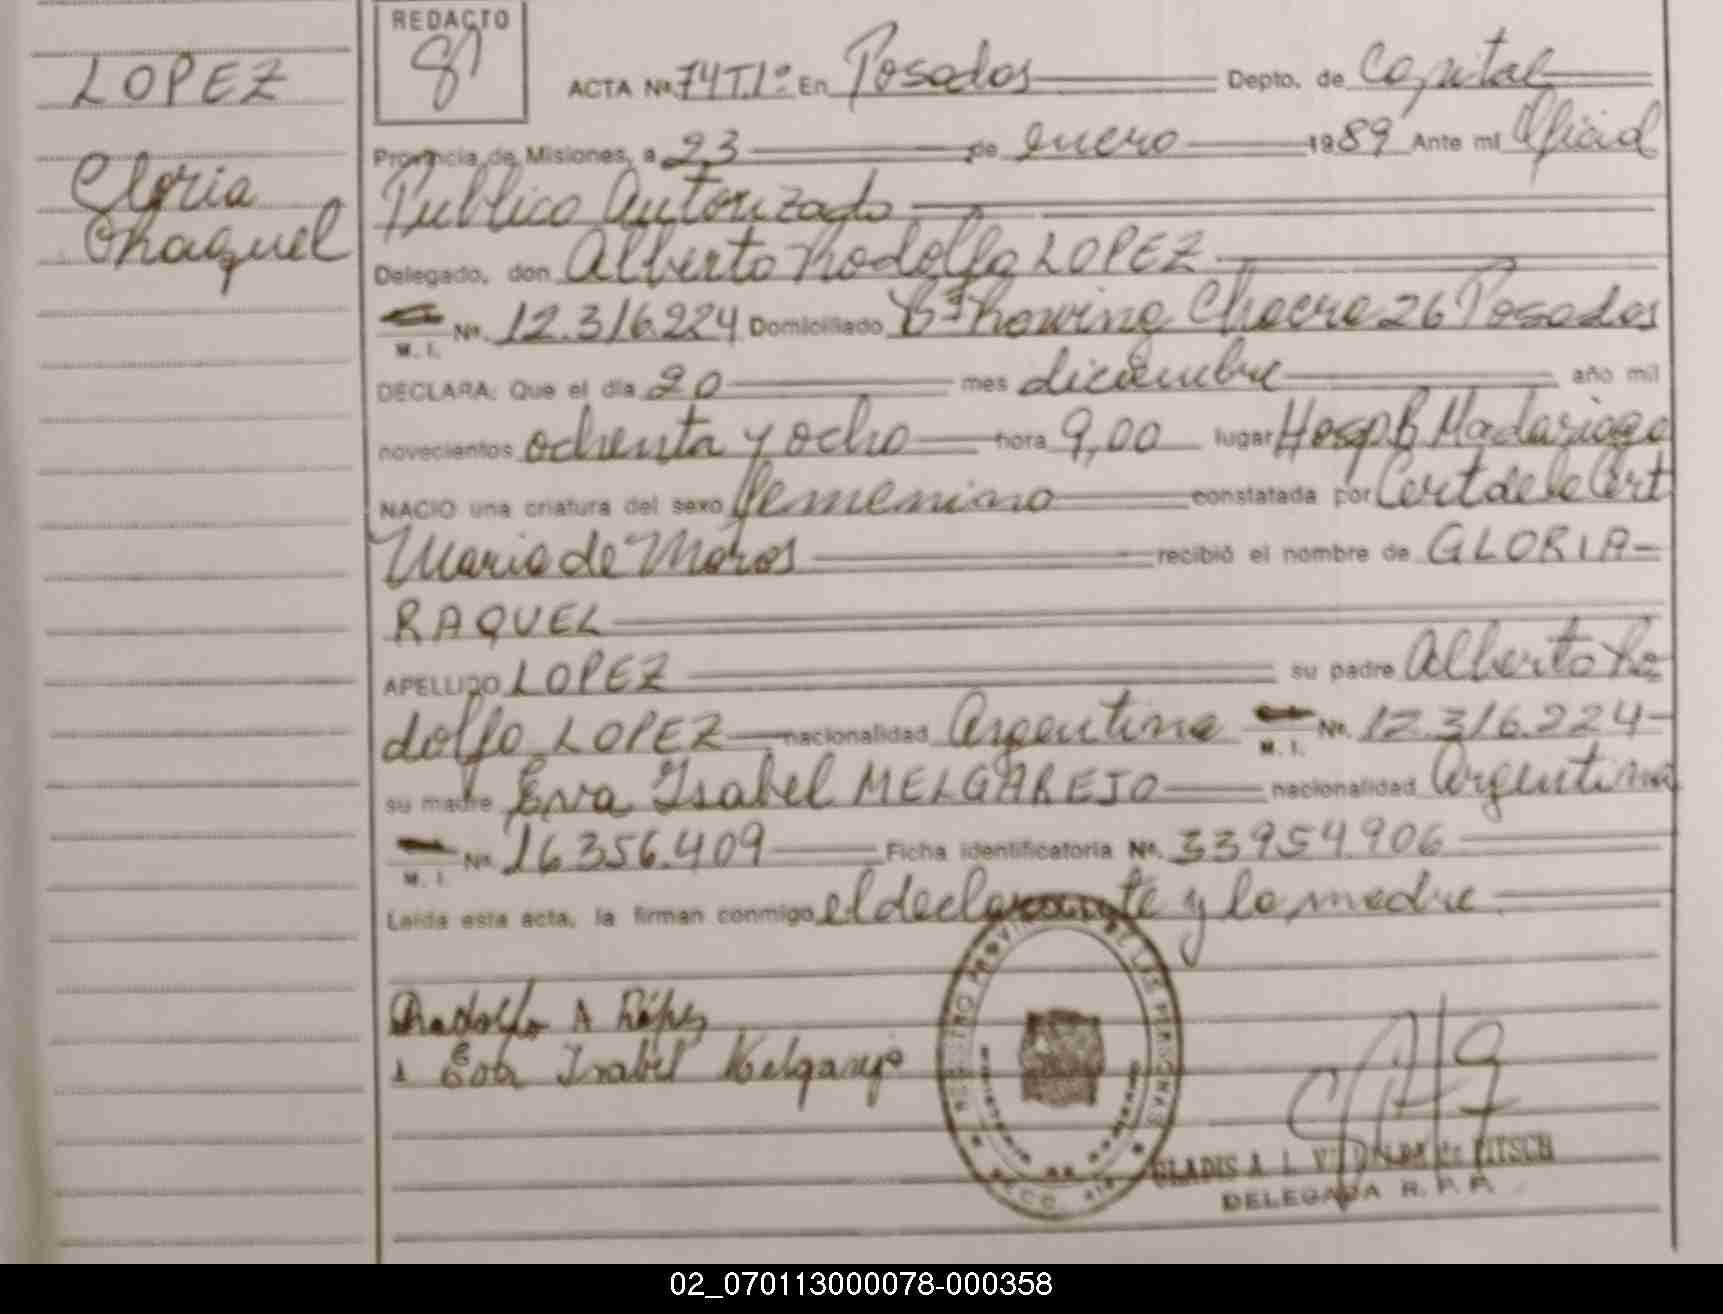 LOPEZ
Gloria
Rhaquel
REDACTO
ACTA Nº 74T.1º En Posadas Depto. de Capital
Provincia de Misiones, a 23 de enero 1989 Ante mi Oficial
Publico Autorizado
Delegado, don Alberto Rodolfo LOPEZ
M. I. Nº. 12.316.224 Domiciliado Bº Rowing Chacra 26 Posadas
DECLARA: Que el día 20 mes diciembre año mil
novecientos ochenta y ocho hora 9,00 lugar Hosp. R. Madariaga
NACIO una criatura del sexo femenino constatada por Cert de la Part
Maria de Moros recibió el nombre de GLORIA
RAQUEL
APELLIDO LOPEZ su padre Alberto Ro
dolfo LOPEZ nacionalidad Argentina M. I. Nº. 12.316.224
su madre Eva Isabel MELGAREJO nacionalidad Argentina
M. I. Nº 16.356.409 Ficha identificatoria Nº. 33954906
Leída esta acta, la firman conmigo el declarante y la madre.
Rodolfo A López
Eva Isabel Melgarejo
REGISTRO PROVINCIAL DE LAS PERSONAS
GLADIS A. L. de PITSCH
DELEGADA R. P. P.
02_070113000078-000358